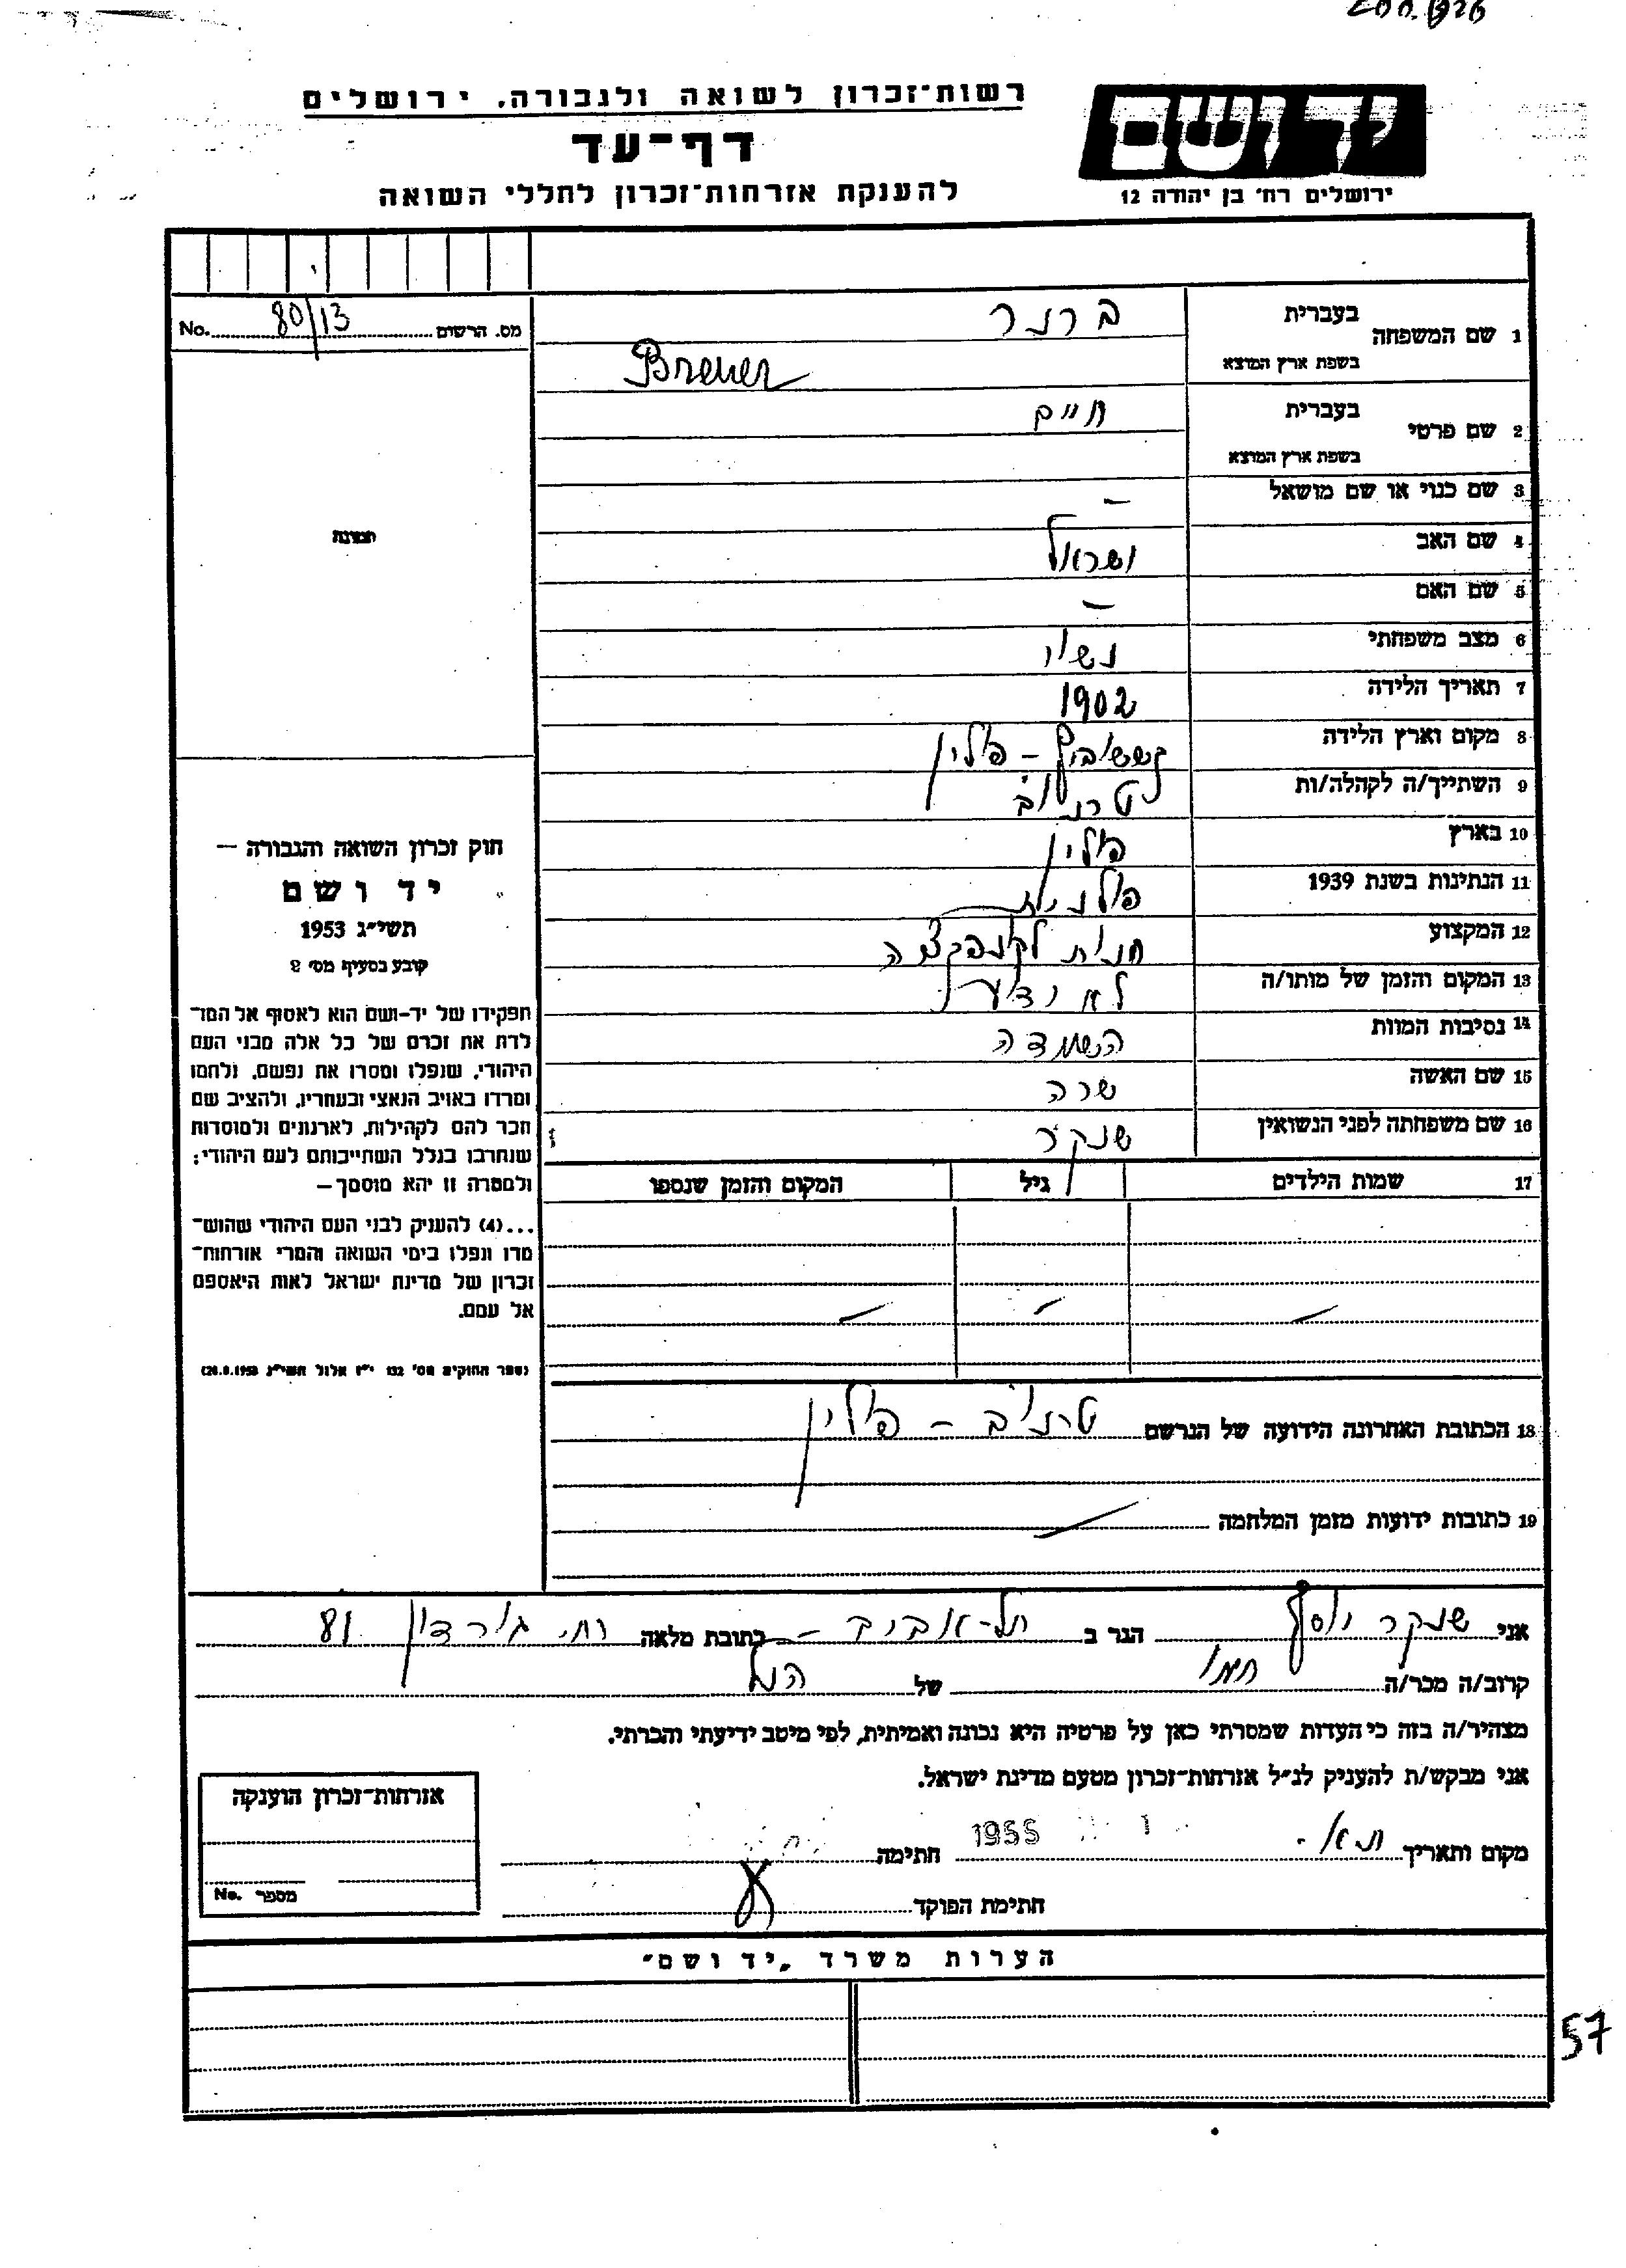 רשות־זכרון לשואה ולגבורה, ירושלים
דף־עד
להענקת אזרחות־זכרון לחללי השואה
יד ושם
ירושלים רח׳ בן יהודה 12
No. 80/13 מס. הרשום
1 שם המשפחה
בעברית ברנר
בשפת ארץ המוצא Brener
2 שם פרטי
בעברית חיים
בשפת ארץ המוצא
3 שם כנוי או שם מושאל –
4 שם האב ישראל
5 שם האם –
6 מצב משפחתי נשוי
7 תאריך הלידה 1902
8 מקום וארץ הלידה פולין
9 השתייך/ה לקהלה/ות טרנוב
10 בארץ פולין
11 הנתינות בשנת 1939 פולנית
12 המקצוע חנות לקונפקציה
13 המקום והזמן של מותו/ה לא ידוע
14 נסיבות המוות השמדה
15 שם האשה שרה
16 שם משפחתה לפני הנשואין שנקר
17 שמות הילדים גיל המקום והזמן שנספו
תמונה
חוק זכרון השואה והגבורה –
יד ושם
תשי״ג 1953
קובע בסעיף מס׳ 2
תפקידו של יד-ושם הוא לאסוף אל המו־
לדת את זכרם של כל אלה מבני העם
היהודי, שנפלו ומסרו את נפשם, נלחמו
ומרדו באויב הנאצי ובעוזריו, ולהציב שם
וזכר להם לקהילות, לארגונים ולמוסדות
שנחרבו בגלל השתייכותם לעם היהודי;
ולמטרה זו יהא מוסמך –
...(4) להעניק לבני העם היהודי שהוש־
מדו ונפלו בימי השואה והמרי אזרחות־
זכרון של מדינת ישראל לאות היאספם
אל עמם.
(ספר החוקים מס׳ 132 י״ז אלול תשי״ג 28.8.1953)
18 הכתובת האחרונה הידועה של הנרשם טרנוב – פולין
19 כתובות ידועות מזמן המלחמה
אני שנקר יוסף הגר ב תל-אביב – כתובת מלאה רח׳ גורדון 81
קרוב/ה מכר/ה של הנ״ל
מצהיר/ה בזה כי העדות שמסרתי כאן על פרטיה היא נכונה ואמיתית, לפי מיטב ידיעתי והכרתי.
אני מבקש/ת להעניק לנ״ל אזרחות-זכרון מטעם מדינת ישראל.
מקום ותאריך ת״א 1955 חתימה
חתימת הפוקד
אזרחות־זכרון הוענקה
מספר No.
הערות משרד „יד ושם״
57